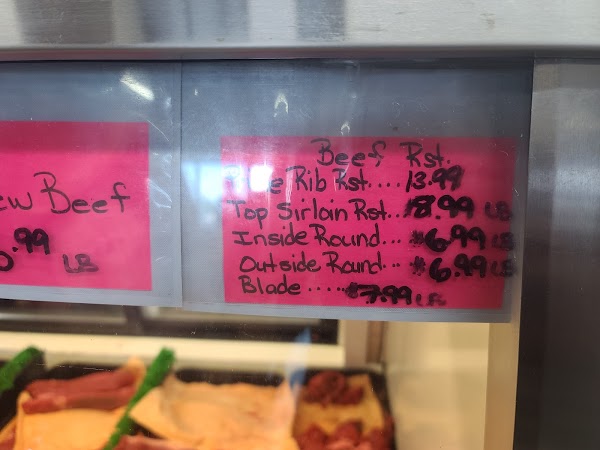 ew Beef
.99
LB
Beef Rst.
Rib Rst.... 13.99
Top Sirloin Rst. $8.99 LB
Inside Round... $6.99 LB
Outside Round... $6.99 LB
Blade ..... $7.99 LB